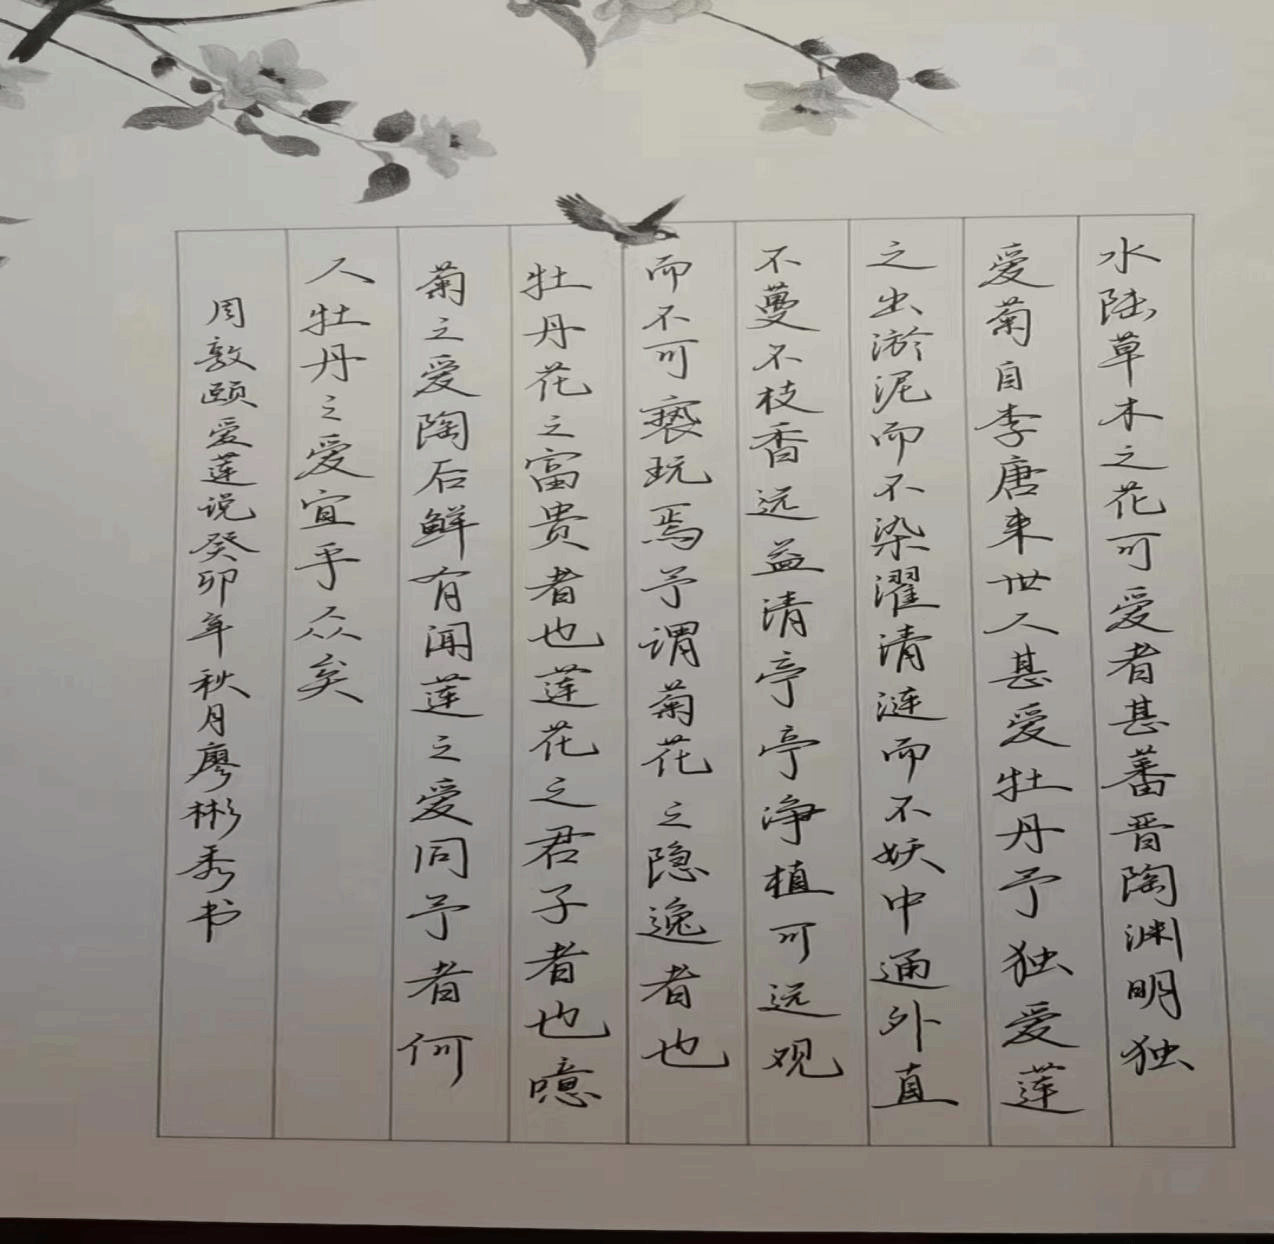 水陆草木之花可爱者甚蕃晋陶渊明独
爱菊自李唐来世人甚爱牡丹予独爱莲
之出淤泥而不染濯清涟而不妖中通外直
不蔓不枝香远益清亭亭净植可远观
而不可亵玩焉予谓菊花之隐逸者也
牡丹花之富贵者也莲花之君子者也噫
菊之爱陶后鲜有闻莲之爱同予者何
人牡丹之爱宜乎众矣
周敦颐爱莲说癸卯年秋月廖彬秀书